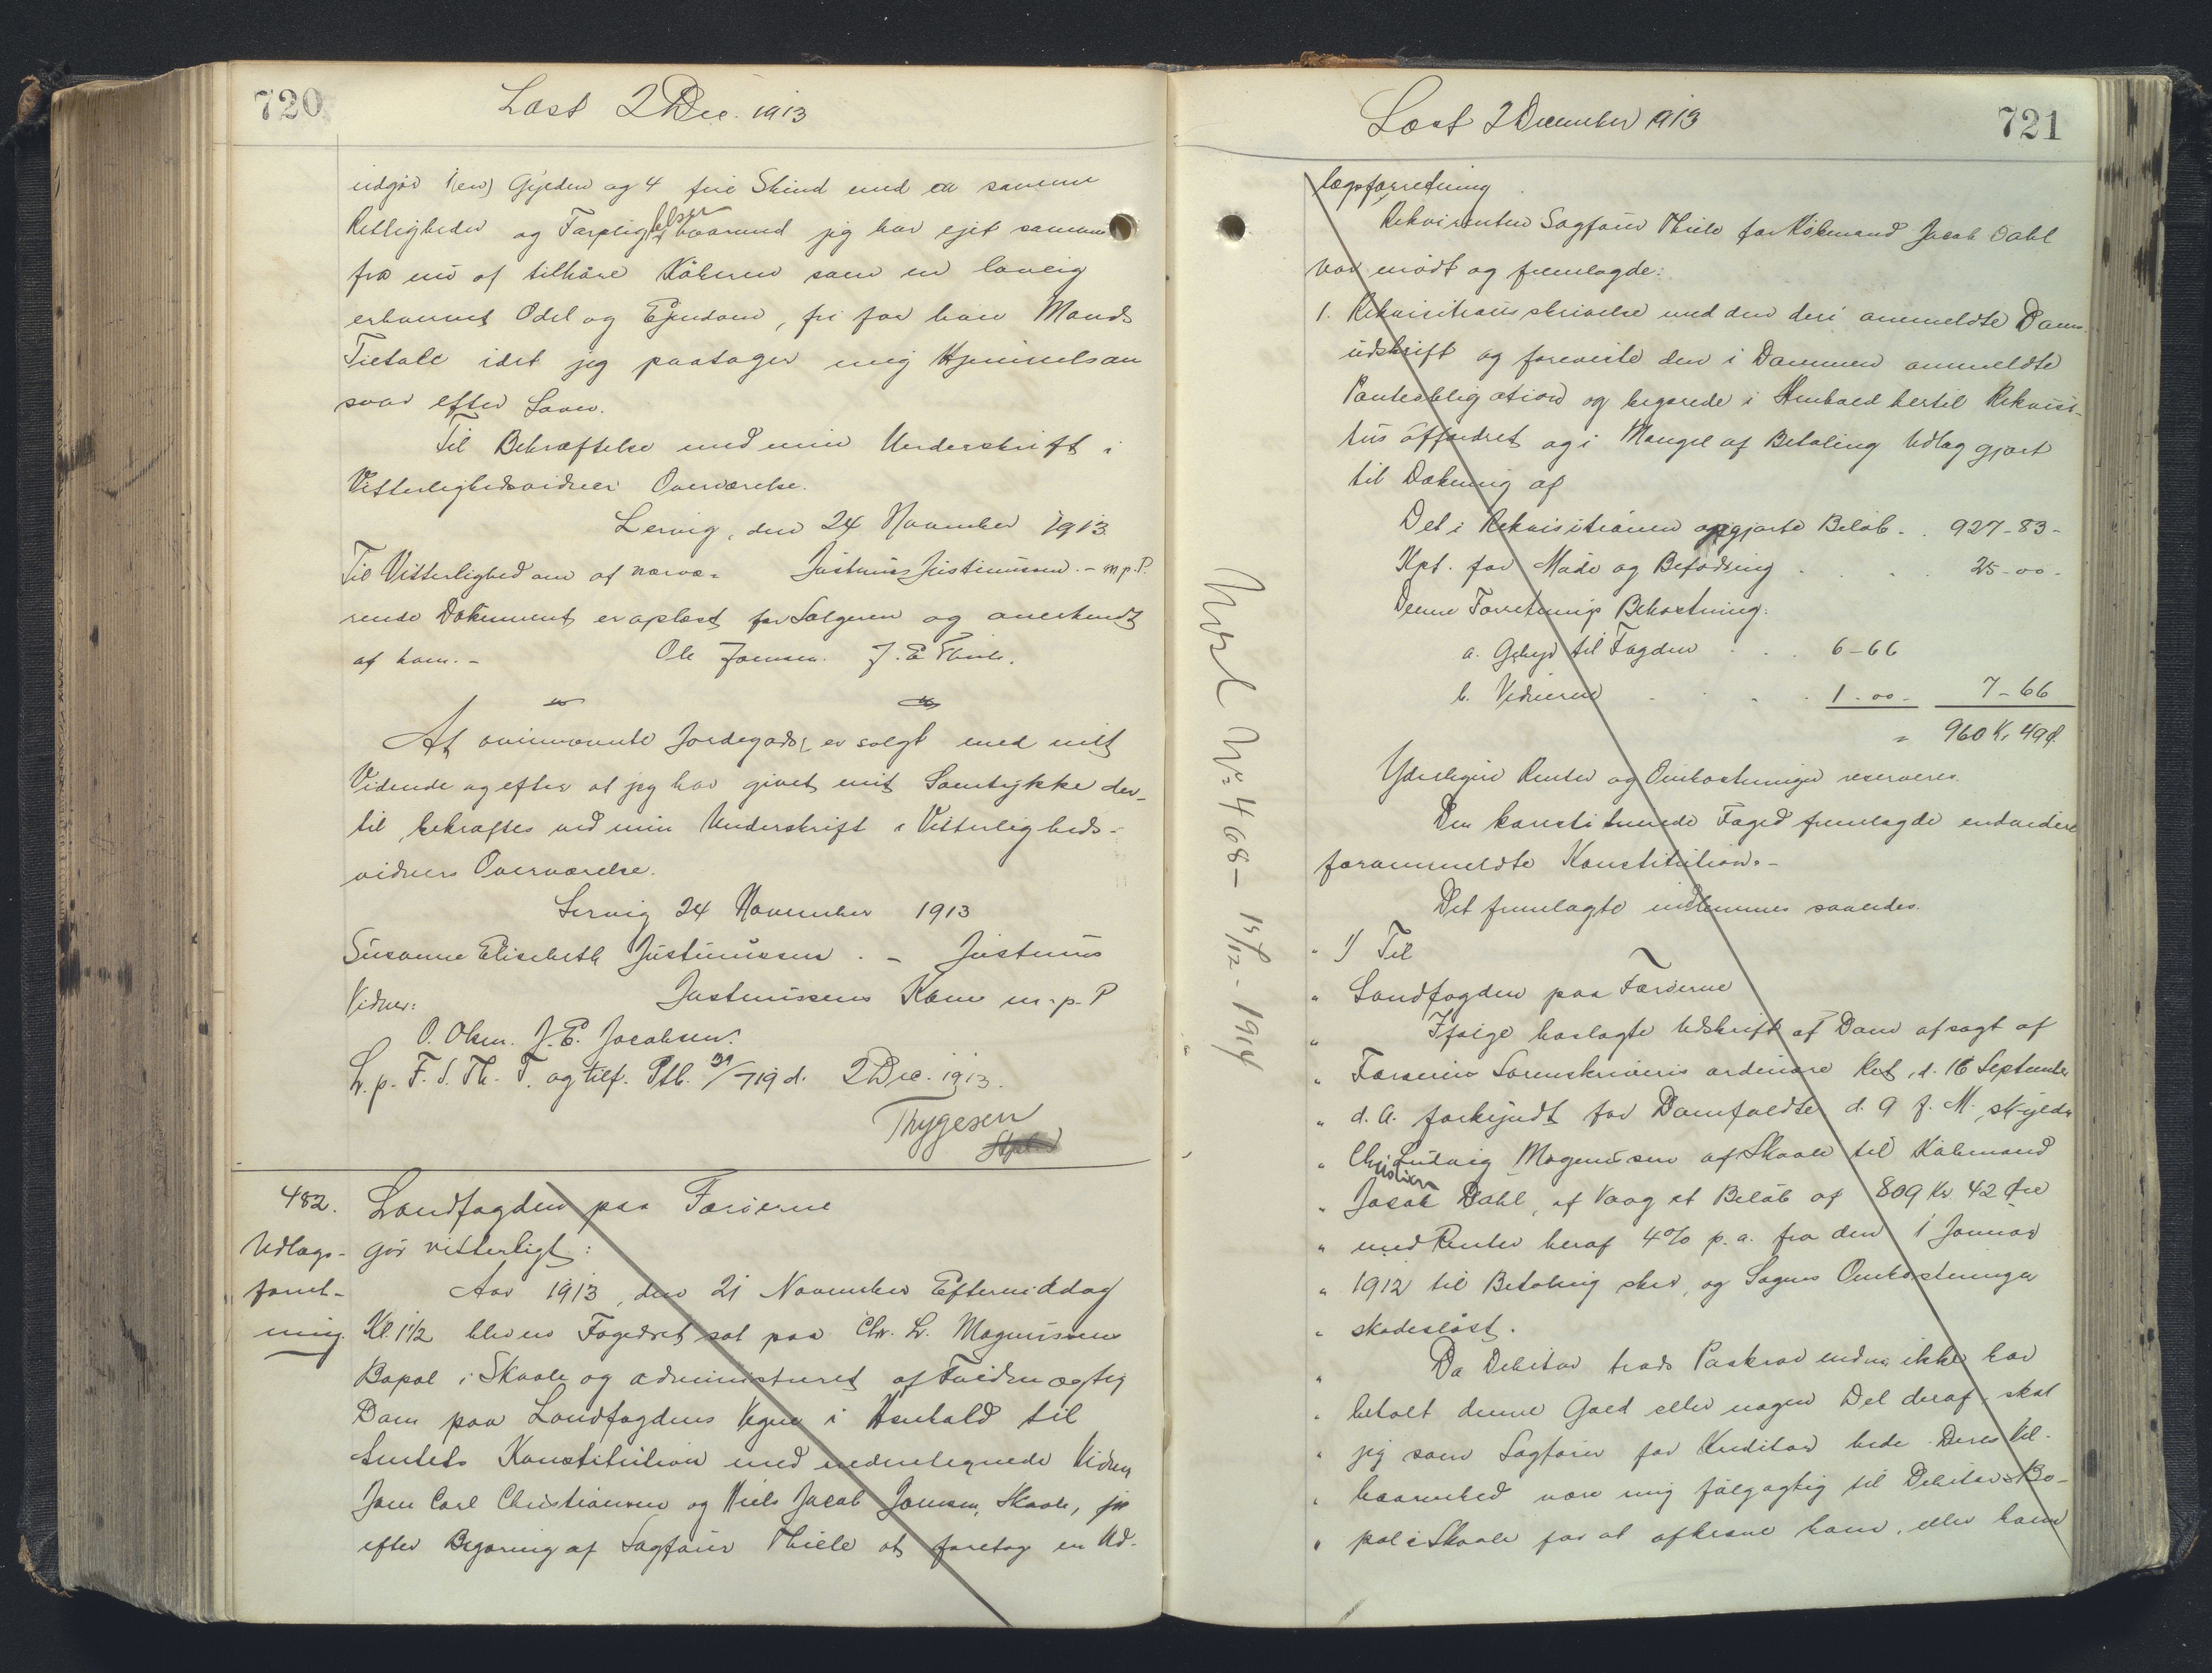 720
Læst 2 Dec. 1913
udgør 1 (en) Gylden og 4 fire Skind med de samme
Rettigheder og Forpligtelser hvormed jeg har ejet samme
fra nu af tilhøre Køberen som en lovlig
erhvervet Odel og Ejendom, fri for hver Mands
Tiltale idet jeg paatager mig Hjemmelsan
svar efter Loven.
Til Bekræftelse med min Underskrift i
Vitterlighedsvidners Overværelse.
Lervig, den 24 November 1913
Til Vitterlighed om at nærvæ= Justinus Justinussen. - m.p.P.
rende Dokument er oplæst for Sælgeren og anerkendt
af ham. - Ole Joensen. J. E.
At ovennævnte Jordegods er solgt med mit
Vidende og efter at jeg har givet mit Samtykke der-
til bekræftes ved min Underskrift i Vitterligheds-
vidners Overværelse.
Lervig 24 November 1913
Susanne Elisebeth Justinussen. - Justinus
Vidner: Justinussens Kone m. p. P
O. Olsen. J. E. Jacobsen.
L. p. F. S. Th. T. og tilf. Ptb. 719 d. 2 Dec. 1913.
Thygesen
482. Landfogden paa Færøerne
Udlægs- gør vitterligt:
forret- Aar 1913, den 21 November Eftermiddag
ning. Kl. 1 1/2 blev en Fogedret sat paa Chr. L. Magnussens
Bopæl i Skaale og administreret af Fuldmægtig
Dam paa Landfogdens Vegne i Henhold til
Amtets Konstitution med undertegnede Vidner
Joen Carl Christiansen og Niels Jacob Joensen, Skaale, for
efter Begæring af Sagfører Thiele at foretage en Ud-
Læst 2 December 1913
721
lægsforretning
Rekvirenten Sagfører Thiele for Købmand Jacob Dahl
var mødt og fremlagde:
1. Rekvisitionsskrivelse med den deri ommeldte Doms-
udskrift og foreviste den i Dommen ommeldte
Panteobligation og begærede i Henhold hertil Rekvisi-
tus opfordret og i Mangel af Betaling Udlæg gjort
til Dækning af
Det i Rekvisitionen opgjorte Beløb . . 927-83-
Kpt. for Møde og Befodring . . . 25-00-
Denne Forretnings Bekostning:
a. Gebyr til Fogden . . . 6-66
b. Vidnerne . . . 1-00- 7-66
= 960 Kr 49 Ø.
Yderligere Renter og Omkostninger reserveres.
Den konstituerede Foged fremlagde endvidere
forommeldte Konstitution. -
Det fremlagte indlemmes saaledes.
" 1) Til
" Landfogden paa Færøerne
" Ifølge hoslagte Udskrift af Dom afsagt af
" Færøernes Sorenskriveris ordinære Ret, d. 16 September
" d. A. forkyndt for Domfældte d. 9 f. M. skylder
" Christian Ludvig Magnussen af Skaale til Købmand
" Jacob Dahl, af Vaag et Beløb af 809 Kr. 42 Øre
" med Renter heraf 4% p. a. fra den 1 Januar
" 1912 til Betaling sker, og Sagens Omkostninger
" skadesløst.
" Da Debitor trods Paakrav endnu ikke har
" betalt denne Gæld eller nogen Del deraf, skal
" jeg som Sagfører for Kreditor bede Deres Vel-
" baarenhed være mig følgagtig til Debitors Bo-
" pæl i Skaale for at afkræve ham, eller hans
Udsl No 408 - 15/12 - 1914